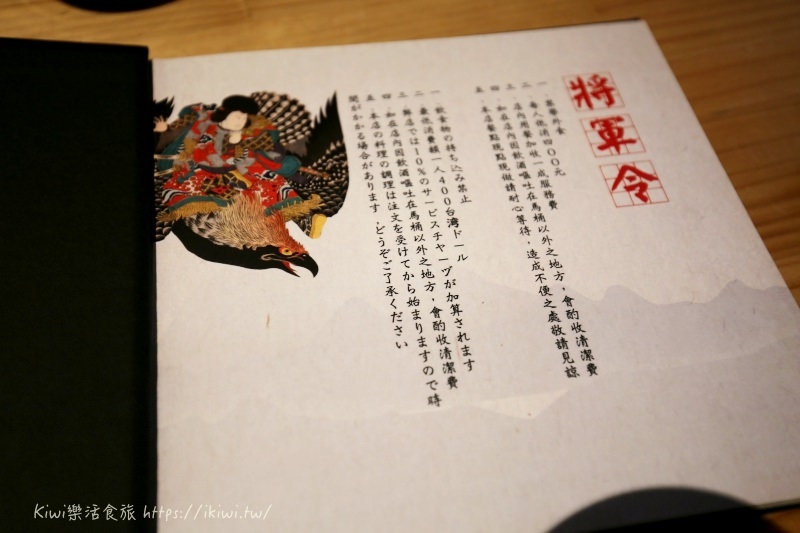 將軍令
一．禁帶外食
二．每人低消四００元
三．店內用餐加收一成服務費
四．如在店內因飲酒嘔吐在馬桶以外之地方，會酌收清潔費
五．本店餐點現點現做請耐心等待，造成不便之處敬請見諒
一 飲食物の持ち込み禁止
二 最低消費額一人４００台湾ドール
三 弊店では１０％のサービスチャーヅが加算されます
四．如在店內因飲酒嘔吐在馬桶以外之地方，會酌收清潔費
五．本店の料理の調理は注文を受けてから始まりますので時
間がかかる場合があります，どうぞご了承ください
Kiwi樂活食旅 https://ikiwi.tw/